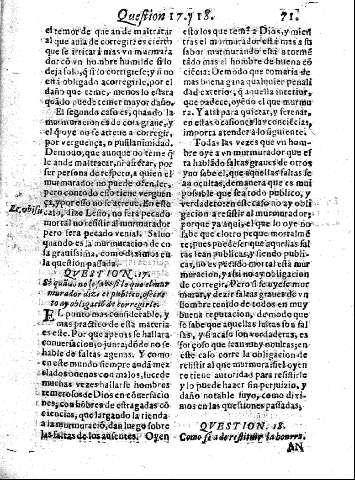 Question 17. y 18. 71.
el temor de que an de maltratar
al que aula de corregir es cierto
que se irritará mas vn murmura
dor có vn hombre humilde si lo
deja solo, q̃ si corrigiesse; y si no
está obligado a corregirle, por el
daño que teme, menos lo estara
quãdo puede temer mayor daño.
El segundo caso es, quando la
murmuracion es de cosa graue, y
el q̃ oye no se atreue a corregir,
por verguença, o pusilanimidad.
De modo, que aunque no teme q̃
le ande maltratar, ni afrentar, por
ser persona de respeto, a quien el
murmurador no puede ofender,
pero contodo esso tiene verguen
ça, y por esso no se atreue. En este
caso, dize Lesio, no sera pecado
mortal no resistir al murmurador
Pero sera pecado venial. Saluo
quando es la murmuracion de co
sa grauissima, como diximos en
la question passada.
QVESTION. 17.
murador dize es publico, estará
to ay obligacion de corregirle.
EL punto mas considerable, y
mas practico de esta materia
es este. Por que apenas se hallara
conuersacion o junta, dõde no se
hable de faltas agenas. Y como
en este mundo siempre andã mez
clados buenos con malos, sucede
muchas vezes hallarse hombres
temerosos de Dios en cõuersacio
nes, con hõbres de estragadas cõ
ciencias, que largando la tienda
a la murmuraciõ, dan luego sobre
las faltas de los ausentes. Oyen
esto los que temẽ a Dios, y mien
tras el murmurador está mas a su
sabor murmurando está atormẽ
tado mas el hombre de buena cõ
ciẽcia: De modo que tomaria de
mas buena gana qualquier penali
dad exterior, q̃ aquella interior,
que padece, oyẽdo el que murmu
ra. Y así para quietar, y serenar,
en estas ocasiones las conciẽcias,
importa atender a lo siguiente.
Todas las vezes que vn hom-
bre oye a vn murmurador que es
ta hablãdo faltas graues de otros
y no sabe el, que aquellas faltas se
an ocultas, de manera que es mui
posible que sea todo publico, y
verdadero; en este caso no ay obli
gacion a resistir al murmurador;
porque ya aquel, que lo oye no
sabe que el otro peque mortalmẽ
te; pues puede ser que aquellas fal
tas sean publicas, y siendo publi-
cas, no es pecado mortal esta mur
muracion, y así no ay obligacion
de corregir. Pero si se oyese mor
morar, y dezir faltas graues de vn
hombre tenido de todos en muy
buena reputacion, demodo que
se sabe que aquellas faltas son fal
sas, y si acaso son verdaderas, es
forçoso que sean muy ocultas; en
este caso corre la obligacion de
resistir al que murmura si el oyen
te tiene autoridad para resistirle
y lo puede hazer sin perjuizio, y
daño notable suyo, como di xi
mos en las questiones passadas;
QVESTION. 18.
Como se a de restituir la honrra.
AN